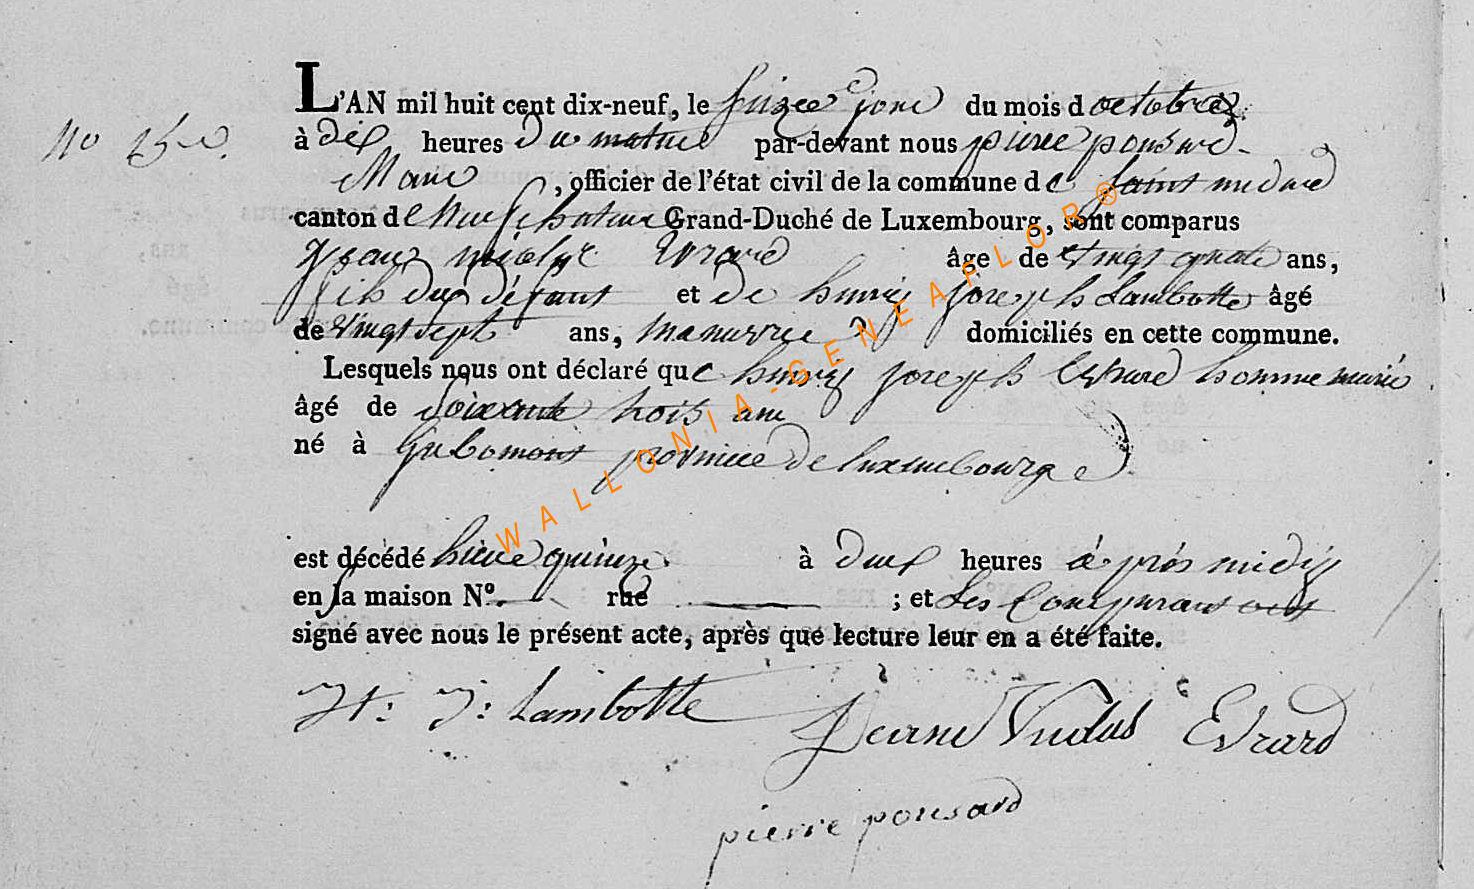 L'AN mil huit cent dix-neuf, le seizee jour du mois d octobre
No 15
à dix heures du matin par-devant nous pierre ponsard
Maire, officier de l'état civil de la commune de Saint medard
canton de Neufchateau Grand-Duché de Luxembourg, sont comparus
Jean nicolas Evrard âge de vingt quatre ans,
fils du défunt et de henry joseph Lambotte âgé
de vingt sept ans, manuvrie domiciliés en cette commune.
Lesquels nous ont déclaré que henry joseph Evrard homme marié
âgé de soixante trois ans
né à Gribomont province de luxembourge
est décédé hiere quinze à deux heures aprés midy
en sa maison No. rue ; et Les Comparant ont
signé avec nous le présent acte, après que lecture leur en a été faite.
H: J: Lambotte Jean Nicolas Evrard
pierre ponsard
WALLONIA-GENEAFLOR®